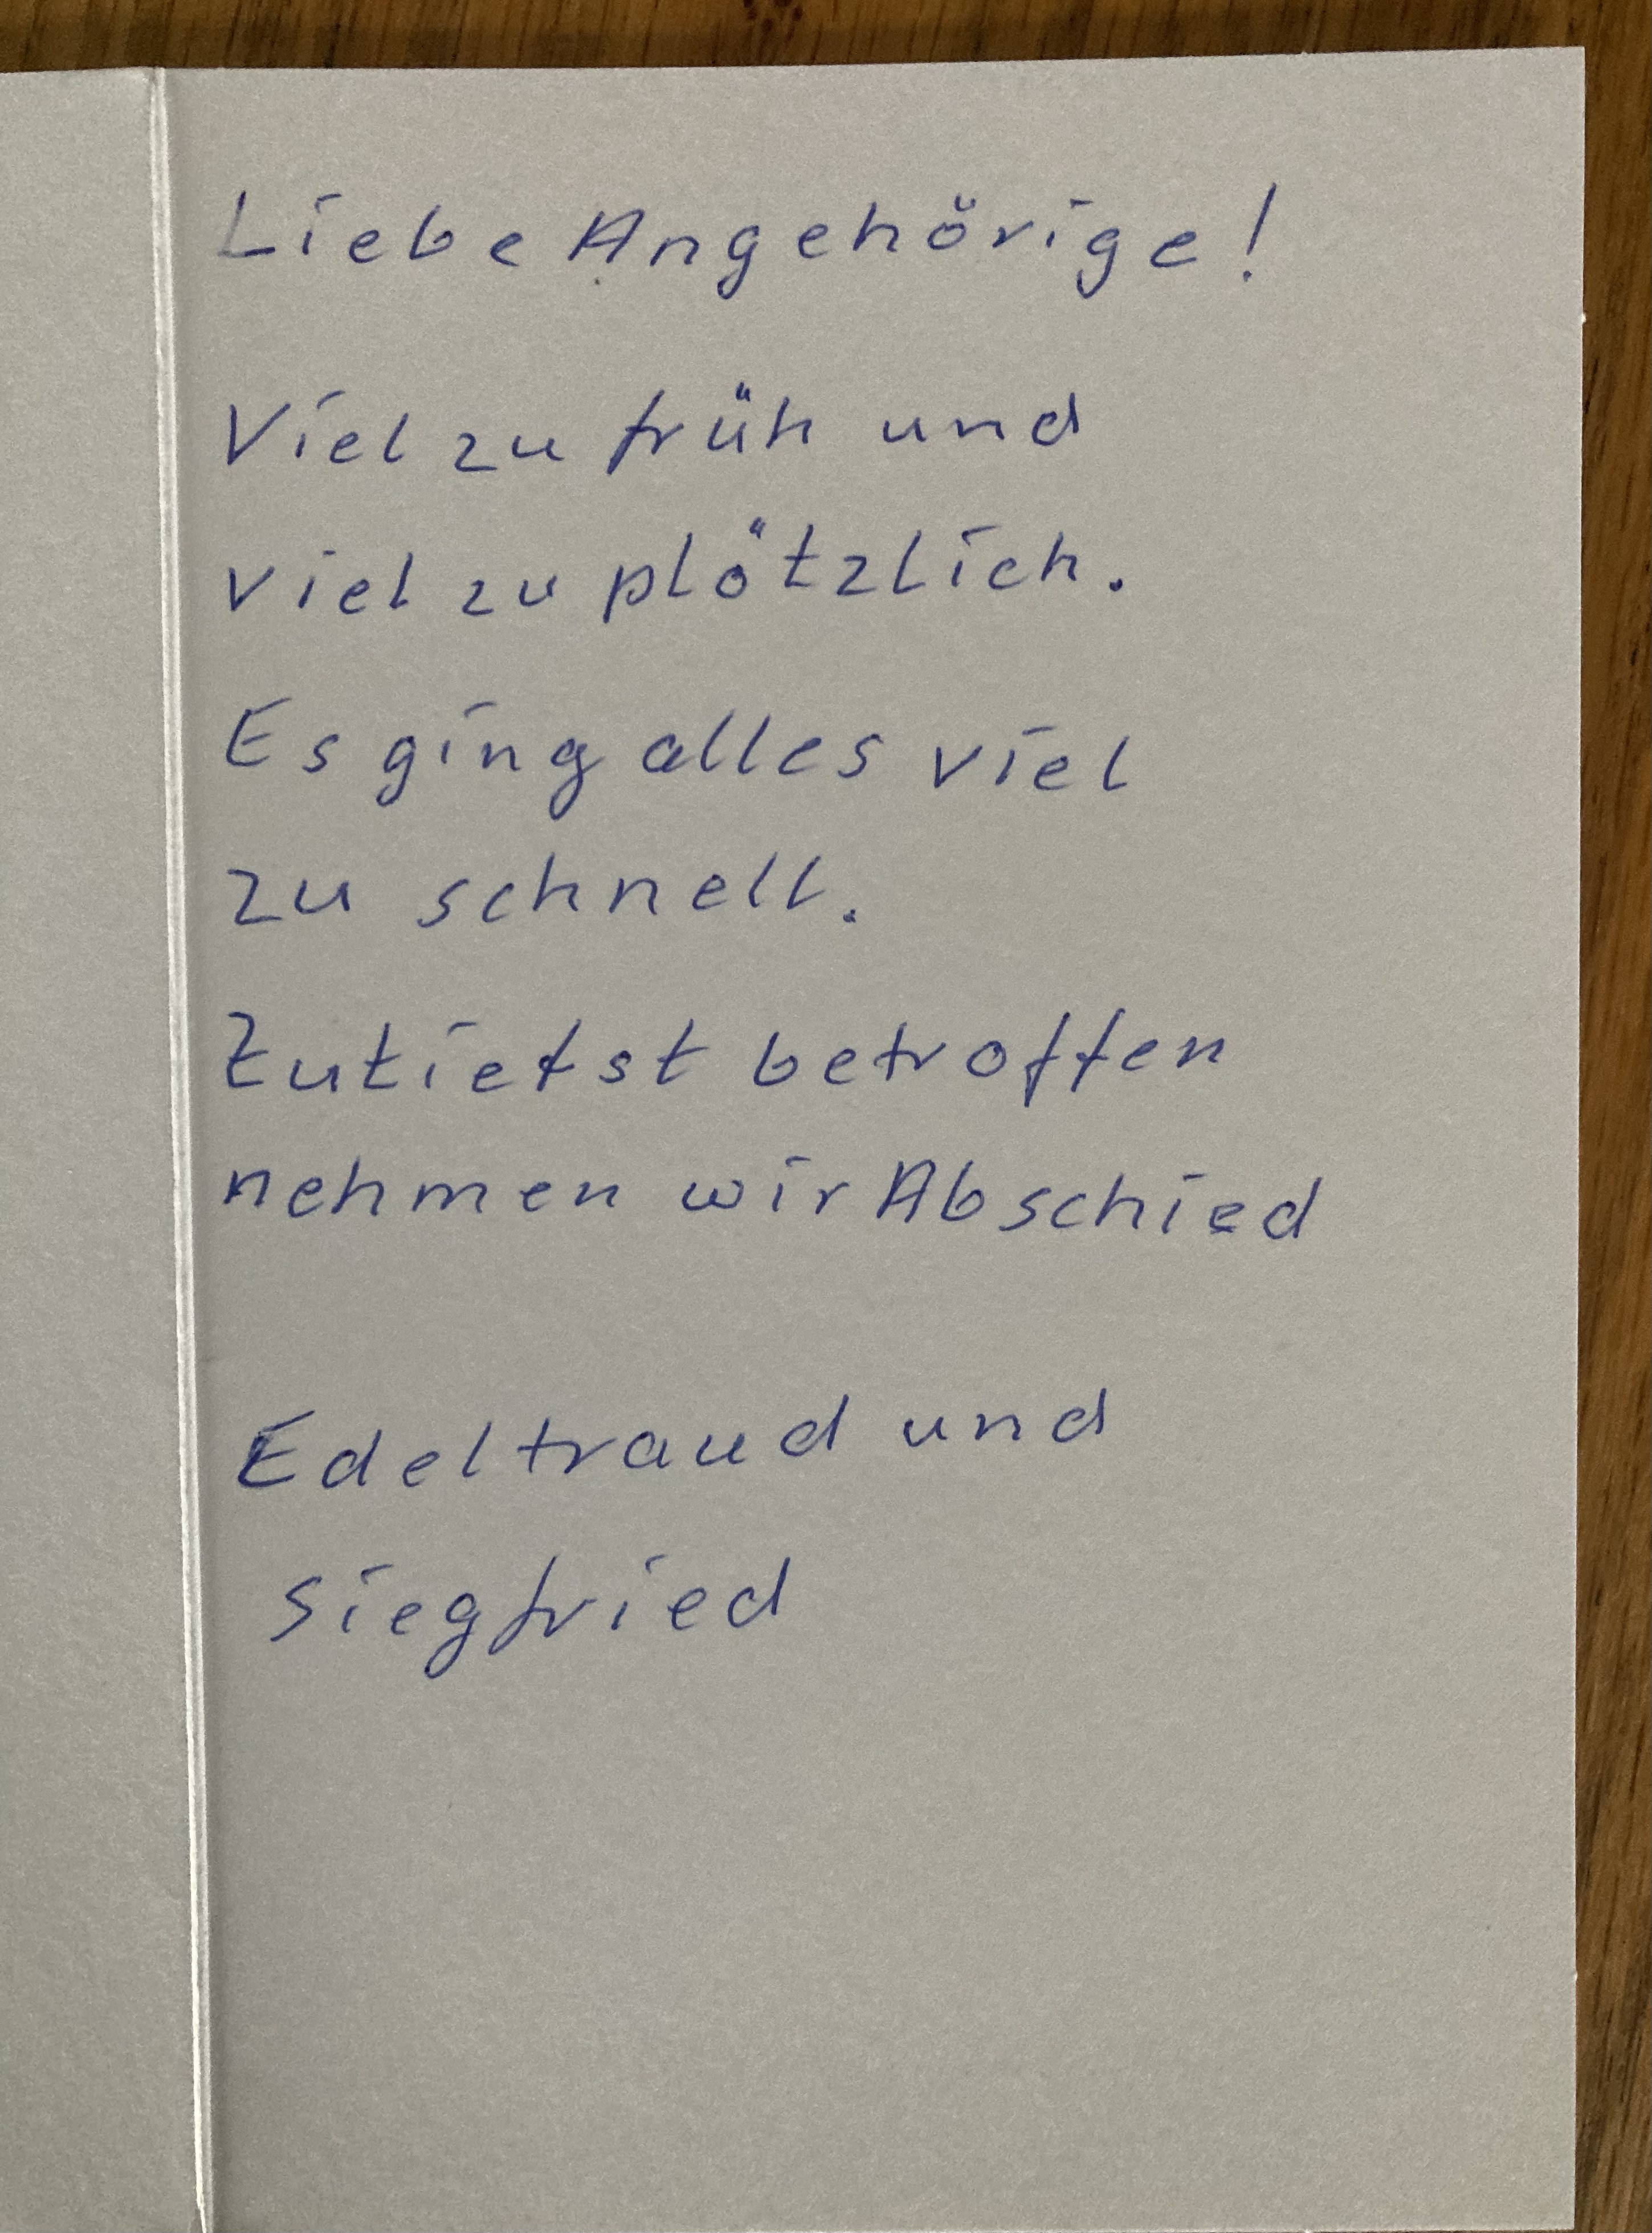 Liebe Angehörige!
Viel zu früh und
viel zu plötzlich.
Es ging alles viel
zu schnell.
Zutiefst betroffen
nehmen wir Abschied
Edeltraud und
Siegfried